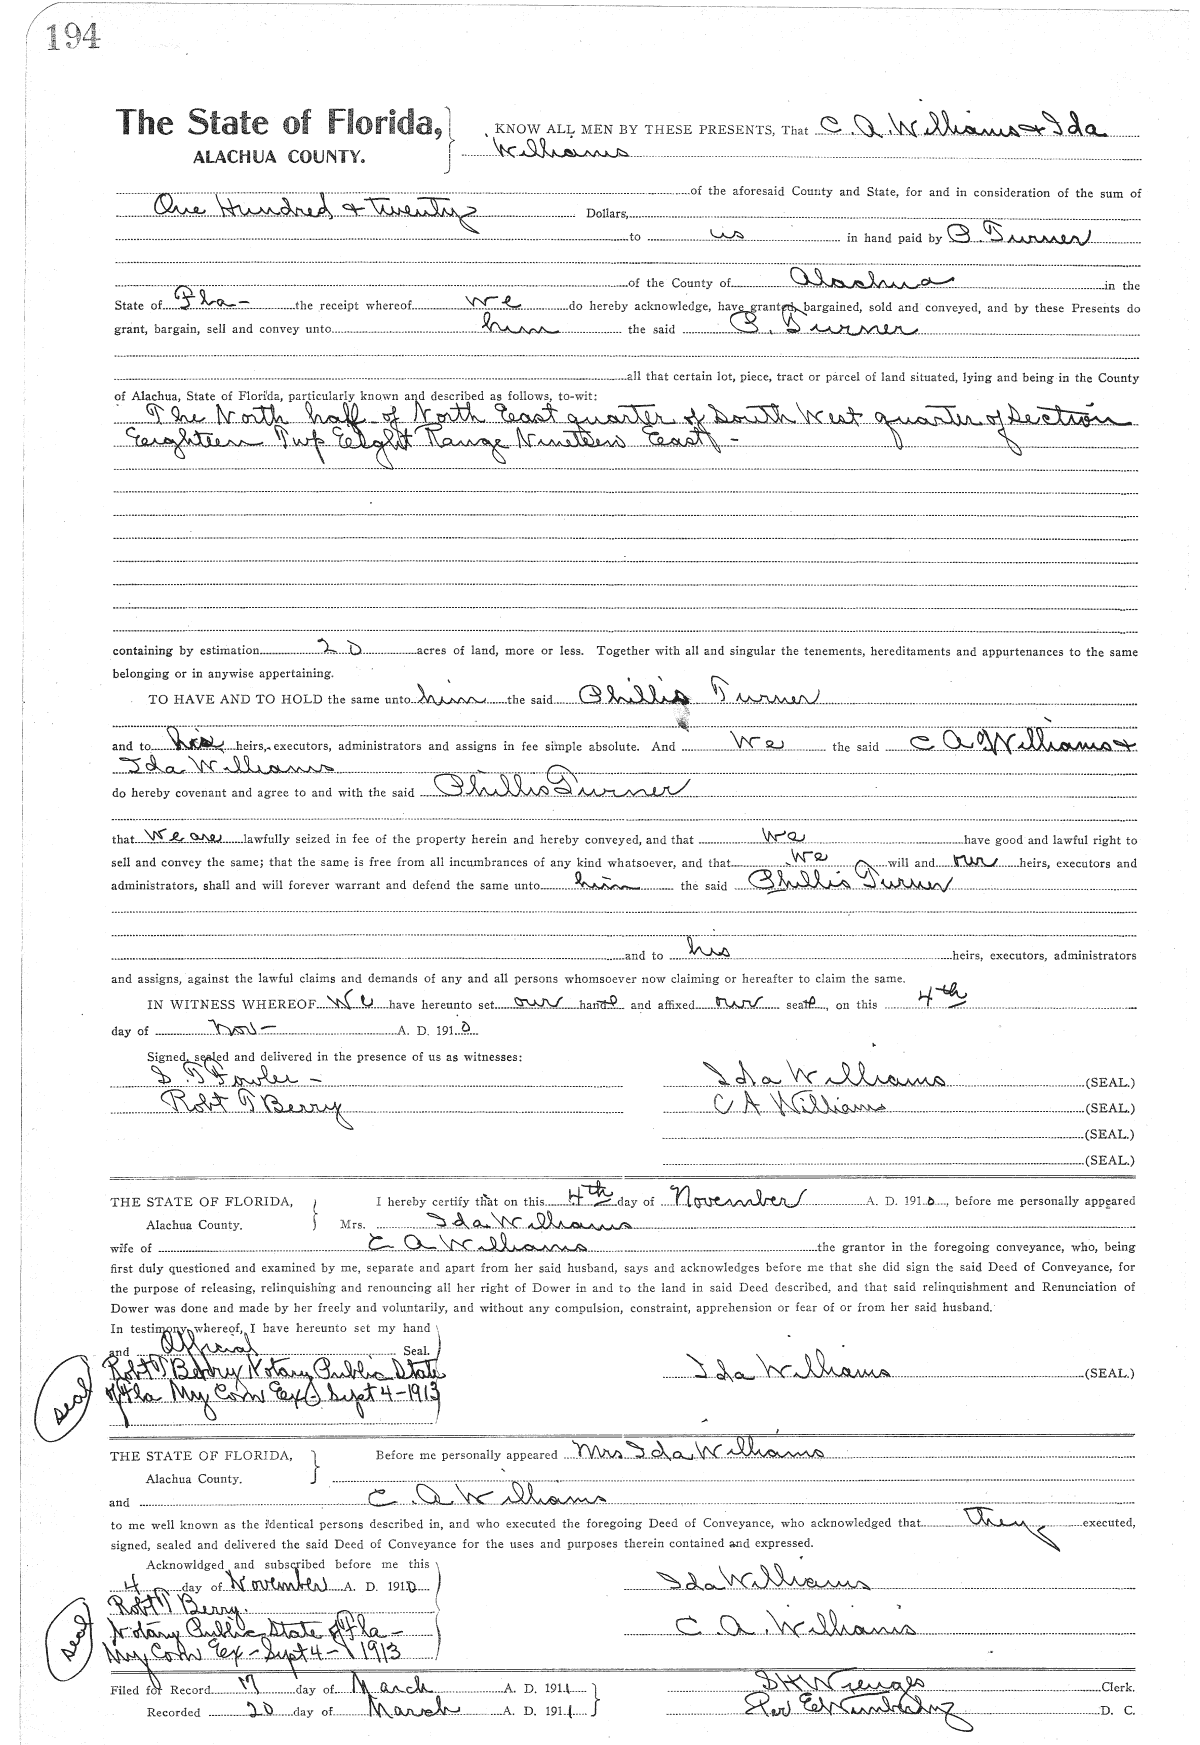 194
The State of Florida, KNOW ALL MEN BY THESE PRESENTS, That C. A. Williams & Ida
ALACHUA COUNTY. Williams
of the aforesaid County and State, for and in consideration of the sum of
One Hundred & Twenty Dollars,
to us in hand paid by P. Turner
of the County of Alachua in the
State of Fla- the receipt whereof we do hereby acknowledge, have granted, bargained, sold and conveyed, and by these Presents do
grant, bargain, sell and convey unto him the said P. Turner
all that certain lot, piece, tract or parcel of land situated, lying and being in the County
of Alachua, State of Florida, particularly known and described as follows, to-wit:
The North half of North East quarter of South West quarter of Section
Eeighteen Twp Eeight Range Nineteen East -
containing by estimation 20 acres of land, more or less. Together with all and singular the tenements, hereditaments and appurtenances to the same
belonging or in anywise appertaining.
TO HAVE AND TO HOLD the same unto him the said Phillis Turner
and to his heirs, executors, administrators and assigns in fee simple absolute. And We the said C A Williams &
Ida Williams
do hereby covenant and agree to and with the said Phillis Turner
that We are lawfully seized in fee of the property herein and hereby conveyed, and that We have good and lawful right to
sell and convey the same; that the same is free from all incumbrances of any kind whatsoever, and that We will and our heirs, executors and
administrators, shall and will forever warrant and defend the same unto him the said Phillis Turner
and to his heirs, executors, administrators
and assigns, against the lawful claims and demands of any and all persons whomsoever now claiming or hereafter to claim the same.
IN WITNESS WHEREOF We have hereunto set our hand and affixed our seal, on this 4th
day of Nov- A. D. 1910
Signed, sealed and delivered in the presence of us as witnesses:
S. T Fowler - Ida Williams (SEAL.)
Robt T Berry C A Williams (SEAL.)
(SEAL.)
(SEAL.)
THE STATE OF FLORIDA, I hereby certify that on this 4th day of November A. D. 1910, before me personally appeared
Alachua County. Mrs. Ida Williams
wife of C A Williams the grantor in the foregoing conveyance, who, being
first duly questioned and examined by me, separate and apart from her said husband, says and acknowledges before me that she did sign the said Deed of Conveyance, for
the purpose of releasing, relinquishing and renouncing all her right of Dower in and to the land in said Deed described, and that said relinquishment and Renunciation of
Dower was done and made by her freely and voluntarily, and without any compulsion, constraint, apprehension or fear of or from her said husband.
In testimony whereof, I have hereunto set my hand
and Official Seal.
Robt T Berry Notary Public State Ida Williams (SEAL)
of Fla My Com Ex- Sept 4-1913
seal
THE STATE OF FLORIDA, Before me personally appeared Mrs Ida Williams
Alachua County.
and C. A Williams
to me well known as the identical persons described in, and who executed the foregoing Deed of Conveyance, who acknowledged that they executed,
signed, sealed and delivered the said Deed of Conveyance for the uses and purposes therein contained and expressed.
Acknowldged and subscribed before me this
4 day of November A. D. 1910 Ida Williams
Robt T Berry.
Notary Public State of Fla - C. A. Williams
My Com Ex - Sept 4 - 1913
seal
Filed for Record 17 day of March A. D. 1911 S H Wienges Clerk.
Recorded 20 day of March A. D. 1911 Per D. C.